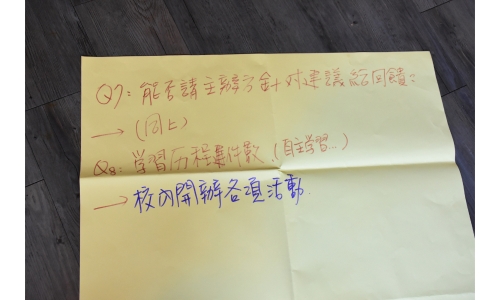 Q7：能否請主辦方針对建議給回饋？
→(同上)
Q8：学習历程案件數(自主学習..)
→校內開辦各項活動.